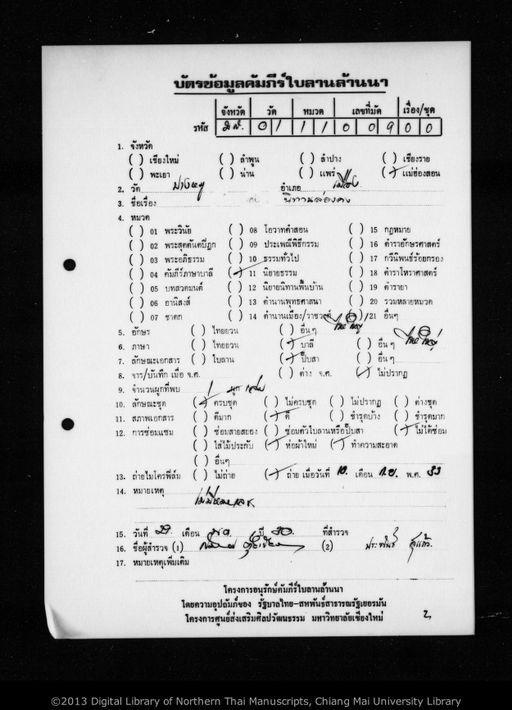 บัตรข้อมูลคัมภีร์ใบลานล้านนา
จังหวัด วัด หมวด เลขที่มัด เรื่อง/ชุด
รหัส มส. 01 11 009 00
1. จังหวัด
( ) เชียงใหม่ ( ) ลำพูน ( ) ลำปาง ( ) เชียงราย
( ) พะเยา ( ) น่าน ( ) แพร่ (/) แม่ฮ่องสอน
2. วัด อำเภอ เมือง
3. ชื่อเรื่อง
4. หมวด
( ) 01 พระวินัย ( ) 08 โอวาทคำสอน ( ) 15 กฎหมาย
( ) 02 พระสุตตันตปิฎก ( ) 09 ประเพณีพิธีกรรม ( ) 16 ตำราอักษรศาสตร์
( ) 03 พระอภิธรรม ( ) 10 ธรรมทั่วไป ( ) 17 กวีนิพนธ์ร้อยกรอง
( ) 04 คัมภีร์ภาษาบาลี (/) 11 นิยายธรรม ( ) 18 ตำราโหราศาสตร์
( ) 05 บทสวดมนต์ ( ) 12 นิยายนิทานพื้นบ้าน ( ) 19 ตำรายา
( ) 06 อานิสงส์ ( ) 13 ตำนานพุทธศาสนา ( ) 20 รวมหลายหมวด
( ) 07 ชาดก ( ) 14 ตำนานเมือง/ราชวงศ์ ( ) 21 อื่นๆ
5. อักษร ( ) ไทยยวน (/) อื่นๆ ไทใหญ่
6. ภาษา ( ) ไทยยวน (/) บาลี (/) อื่นๆ ไทใหญ่
7. ลักษณะเอกสาร ( ) ใบลาน (/) พับสา ( ) อื่นๆ
8. จาร/บันทึก เมื่อ จ.ศ. ( ) ต่าง จ.ศ. (/) ไม่ปรากฏ
9. จำนวนผูกที่พบ 1 ผูก
10. ลักษณะชุด (/) ครบชุด ( ) ไม่ครบชุด ( ) ไม่ปรากฏ ( ) ต่างชุด
11. สภาพเอกสาร ( ) ดีมาก (/) ดี ( ) ชำรุดบ้าง ( ) ชำรุดมาก
12. การซ่อมแซม ( ) ซ่อมสายสยอง ( ) ซ่อมตัวใบลานหรือปั๊บสา (/) ไม่ได้ซ่อม
( ) ใส่ไม้ประกับ (/) ห่อผ้าใหม่ (/) ทำความสะอาด
( ) อื่นๆ
13. ถ่ายไมโครฟิล์ม ( ) ไม่ถ่าย (/) ถ่าย เมื่อวันที่ 10. เดือน ก.ย. พ.ศ. 33
14. หมายเหตุ
15. วันที่ 29. เดือน พ.ค. ปี 30. ที่สำรวจ
16. ชื่อผู้สำรวจ (1) (2)
17. หมายเหตุเพิ่มเติม
โครงการอนุรักษ์คัมภีร์ใบลานล้านนา
โดยความอุปถัมภ์ของ รัฐบาลไทย-สหพันธ์สาธารณรัฐเยอรมัน
โครงการศูนย์ส่งเสริมศิลปวัฒนธรรม มหาวิทยาลัยเชียงใหม่
©2013 Digital Library of Northern Thai Manuscripts, Chiang Mai University Library